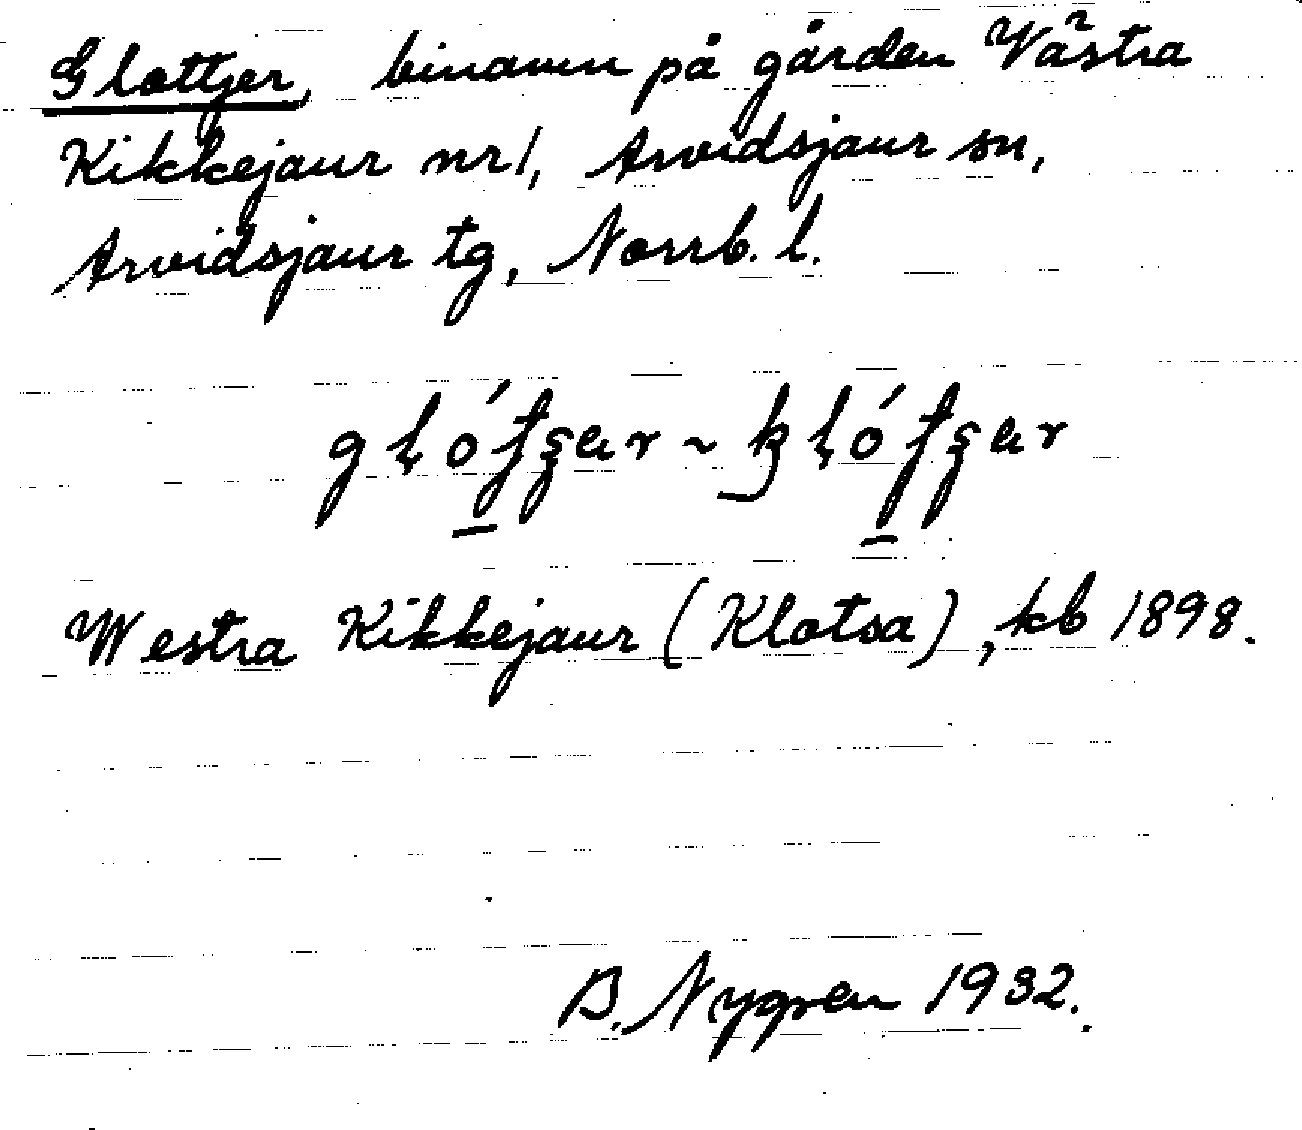 Glottjer, binamn på gården Västra
Kikkejaur nr 1, Arvidsjaur sn,
Arvidsjaur tg, Norrb. l.
Westra Kikkejaur (Klotsa), kb 1898.
B. Nygren 1932.